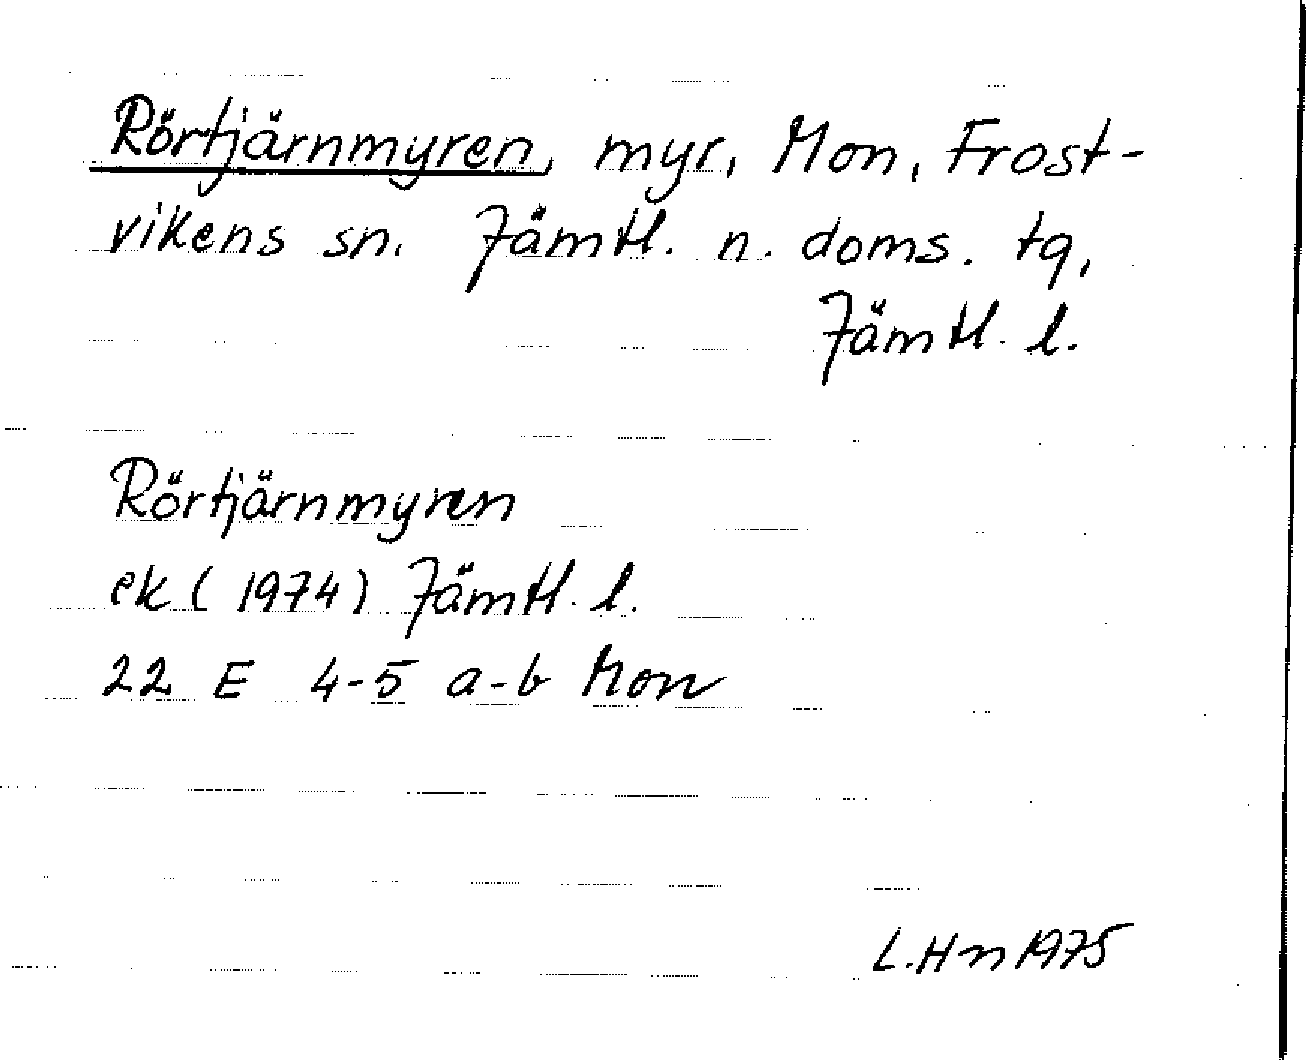 Rörtjärnmyren, myr, Mon, Frost-
vikens sn. Jämtl. n. doms. tg,
Jämtl. l.
Rörtjärnmyren
ek (1974) Jämtl. l.
22 E 4-5 a-b Mon
L.Hn 1975